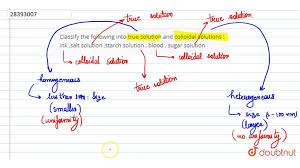 28393007
true solution
true solution.
Classify the following into true solution and colloidal solutions :
Ink ,salt solution ,starch solution , blood , sugar solution
colloidal solution
colloidal solution
true solution
homogeneous
less than 1nm : size
(smaller)
(uniformity)
heterogeneous
size (1-100 nm)
(larger)
(no uniformity)
doubtnut